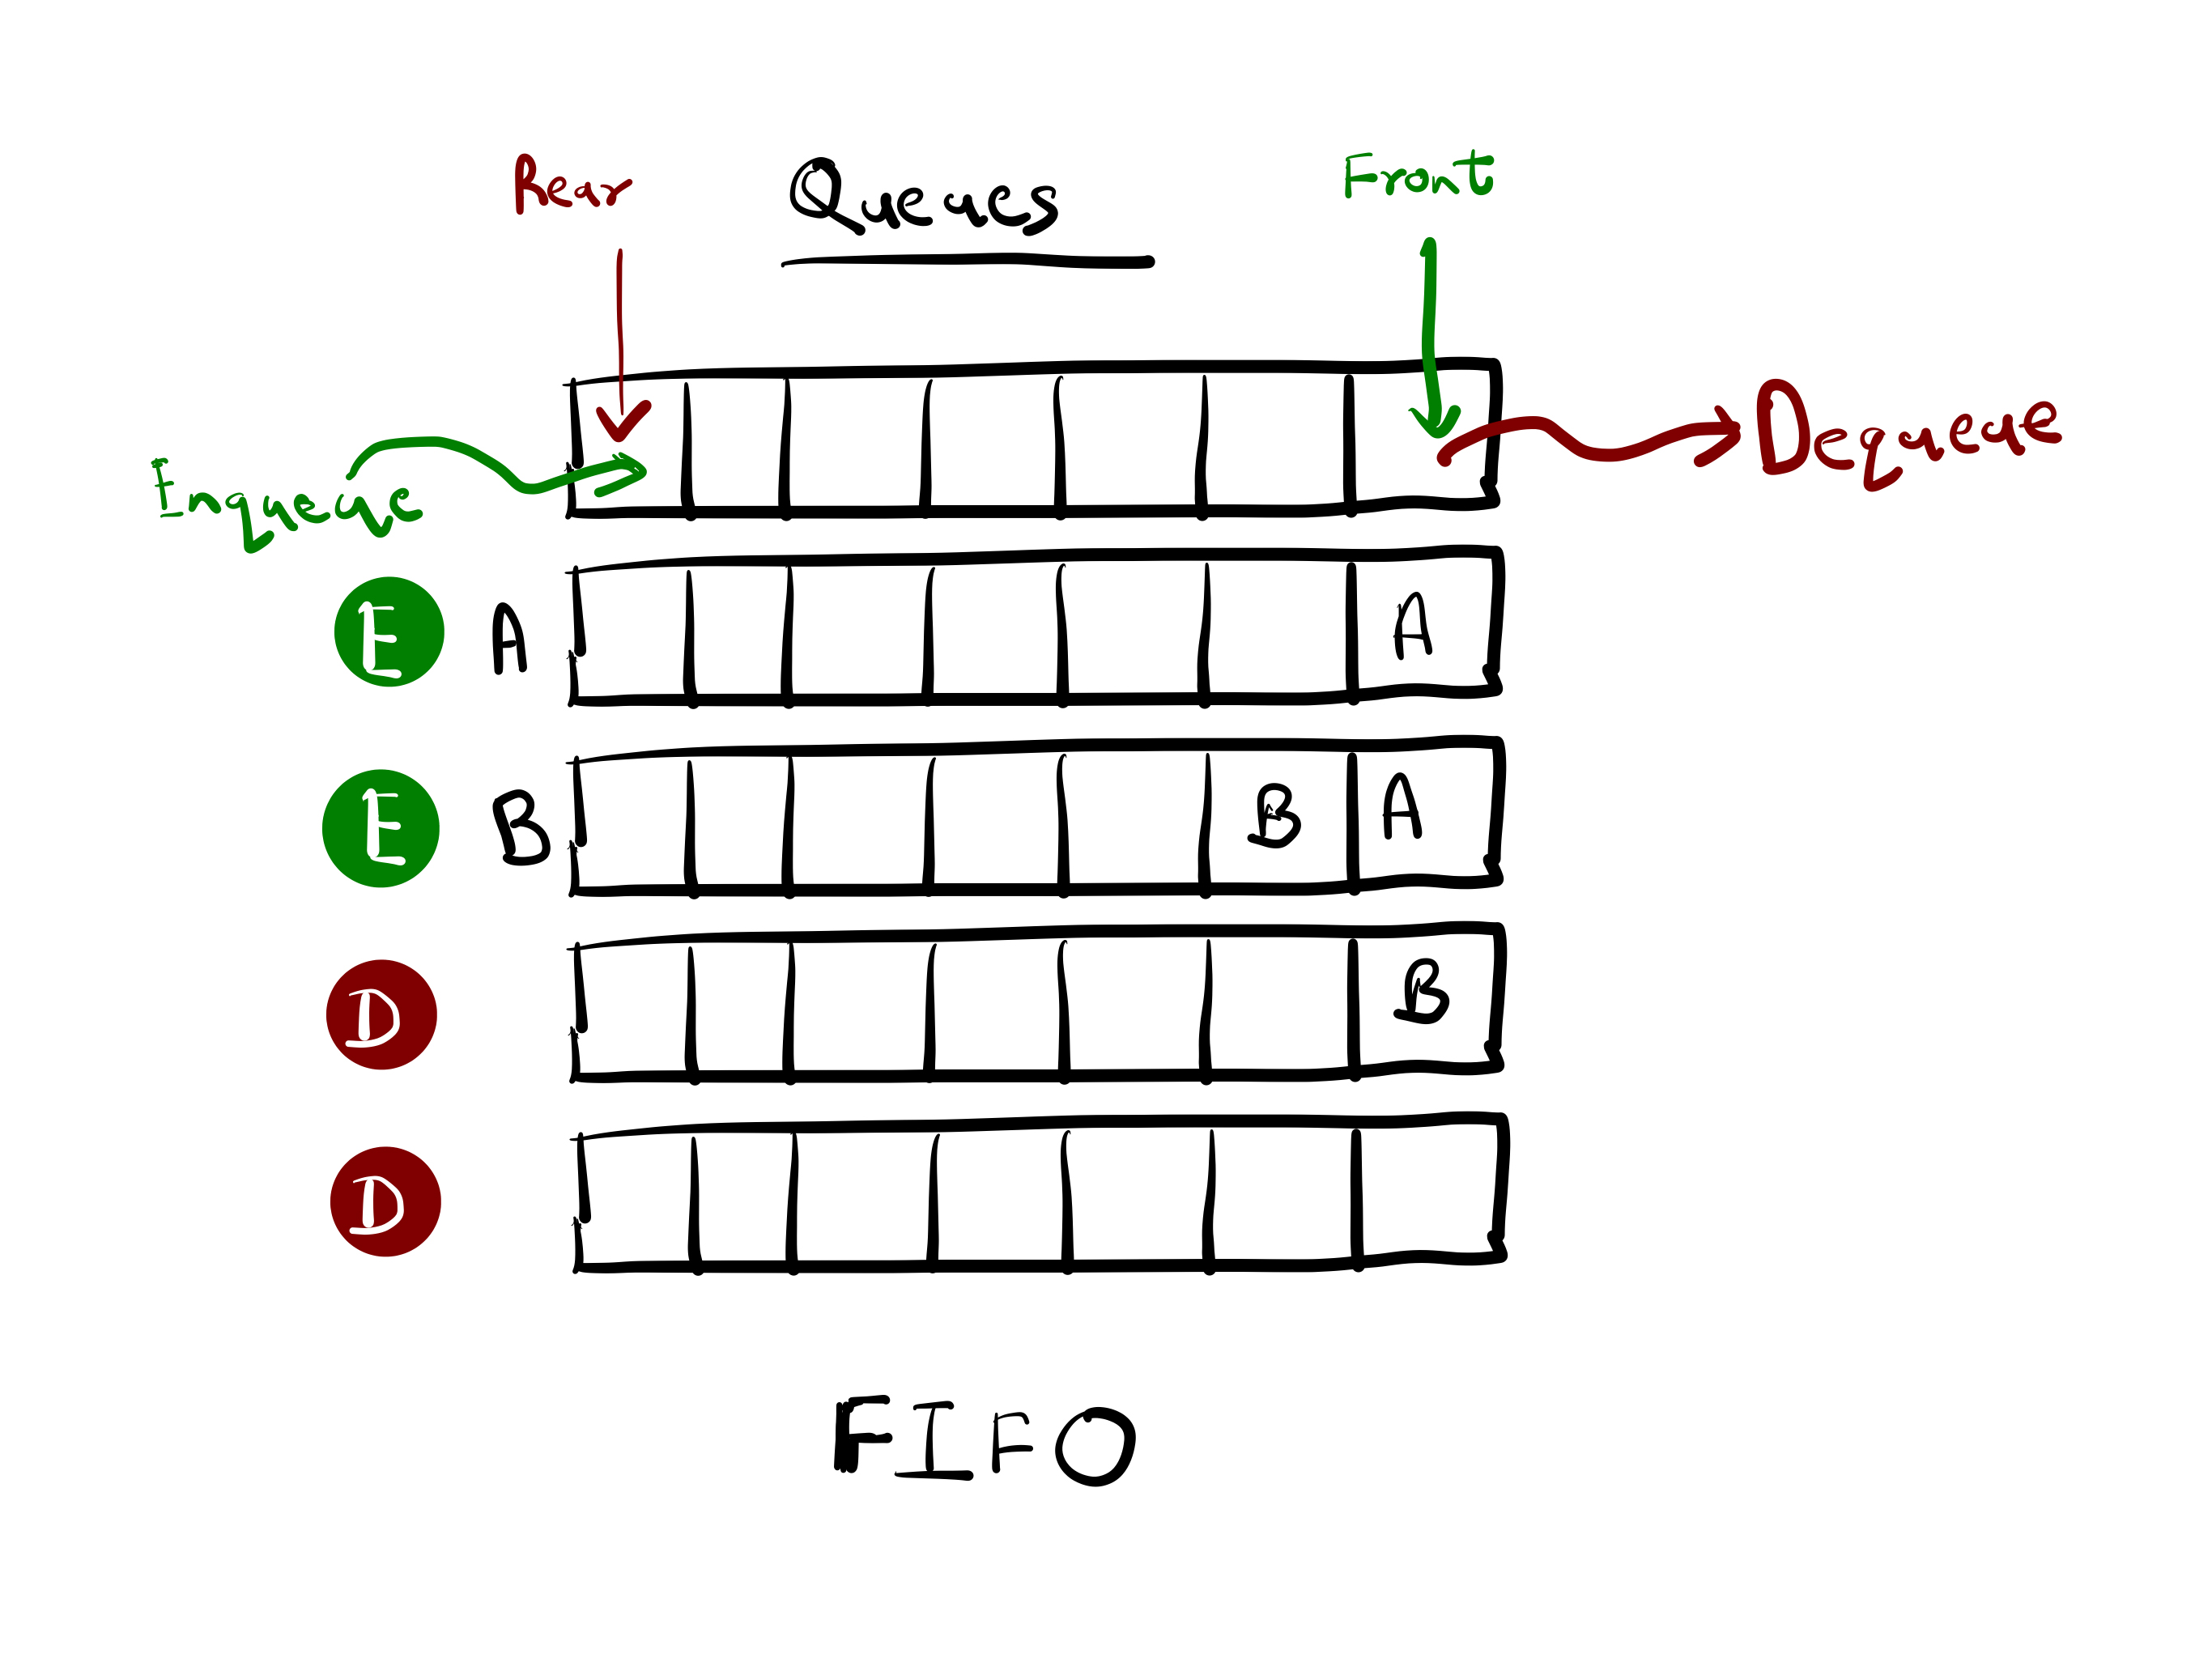 Rear Queues Front
Enqueue Dequeue
E A A
E B B A
D B
D
FIFO